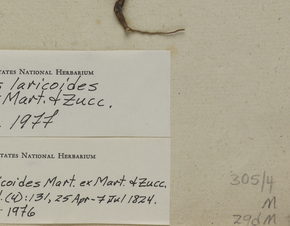 TATES NATIONAL HERBARIUM
laricoides
Mart. & Zucc.
1977
TATES NATIONAL HERBARIUM
icoides Mart. ex Mart. & Zucc.
(4): 131, 25 Apr - 7 Jul 1824.
- 1976
305/4
M
29dM